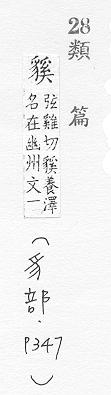 28類篇
貕
弦雞切貕養澤
名在幽州文一
(豸部、P347)